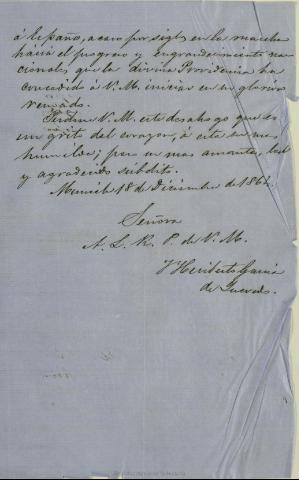 á la España, acaso por siglos en la marcha
hácia el progreso y engrandecimiento na-
cionales, que la divina Providencia ha
concedido á V. M. iniciar en su glorioso
reinado.
Perdone V. M. este desahogo que es
un grito del corazon, á este su mas
humilde; pero su mas amante, leal
y agradecido súbdito.
Munich 18 de Diciembre de 1864.
Señora
A. L. R. P. de V. M.
J Heriberto Garcia
de Quevedo.